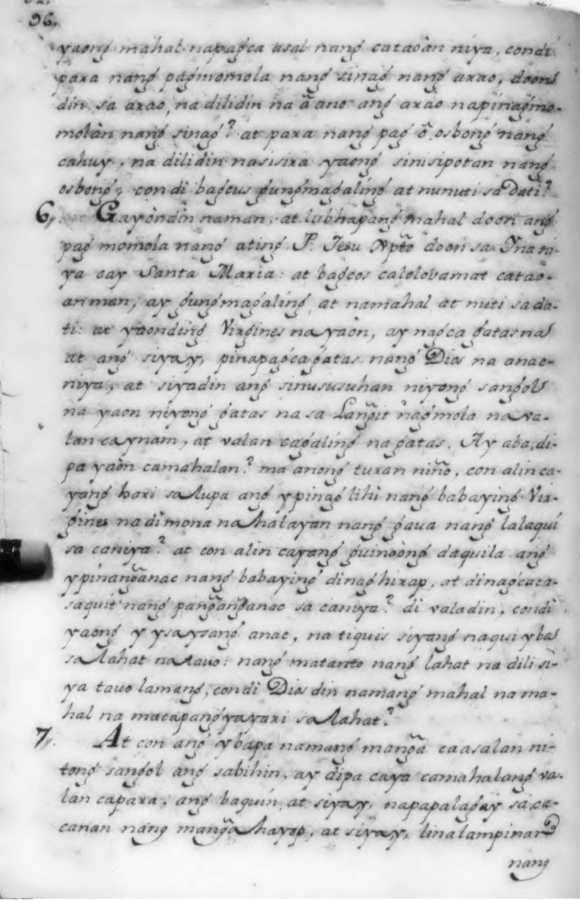 96.
yaong mahal napagca asal nang cataoàn niya, condí
para nang pagmomola nang sinag nang arao, doon
din sa arao, na dilidin na ã ano ang arao napinagmo-
molàn nang sinag? at para nang pag õ osbong nang
cahuy, na dilidin nasisira yaong sinisipotan nang
osbong; con di bagcus gungmagaling at nunuti sa Dati?
6, Gayòndin naman, at lubhapang mahal doon ang
pag momola nang ating P. Iesu Xpto doon sa Yna ni-
ya cay Santa Maria: at bagcos calolovamat catao-
an man, ay gungmagaling, at namahal at nuti sa da-
ti: at yaonding Virgines na yaòn, ay nagca gatas na
at ang siyay, pinapagca gatas nang Dios na anac
niya, at siyadin ang sinususuhan niyong sangol
na yaon niyong gatas na sa Langit nagmola na va-
lan caynam, at valan cagaling na gatas. Ay aba, di-
pa yaòn camahalan? ma anong turan niño, con alin ca-
yang hari sa lupa ang ypinag lihi nang babaying Vir-
gines na di mona nahalayan nang gaua nang lalaqui
sa caniya? at con alin cayang guinoòng daquila ang
ypinanganac nang babaying dinag hirap, at dinagcara-
saquit nang panganganac sa caniya? di valadin, condi
yaong yysaysang anac, na tiquis siyang naquiyba
sa lahat na tauo: nang matanto nang lahat na dili si-
ya tauo lamang, con di Dios din namang mahal na ma-
hal na macapangyayari sa lahat?
7, At con ang ybapa namang manga caasalan ni-
tong sangol ang sabihin, ay dipa caya camahalang va-
lan capara, ang baquin, at siyay, napapalagay sa ca-
canan nang manga hayop, at siyay, linalampinan
nang